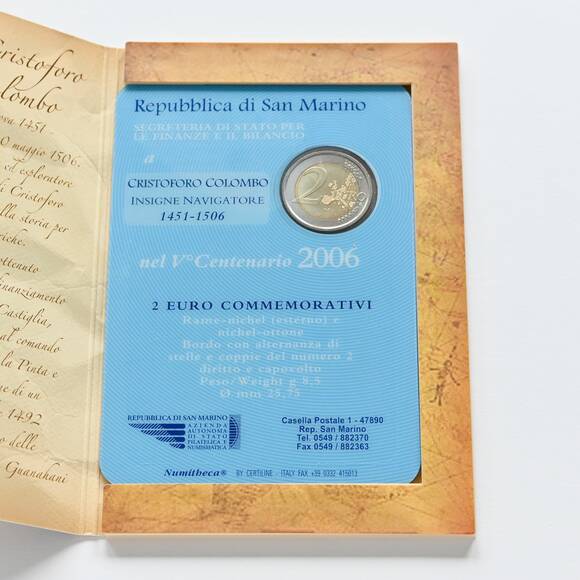 Cristoforo
Colombo
1451
maggio 1506.
ed esploratore
di Cristoforo
storia per
ottenuto
finanziamento
Castiglia,
al comando
la Pinta e
di un
1492
delle
Guanahani
Repubblica di San Marino
SEGRETERIA DI STATO PER
LE FINANZE E IL BILANCIO
a
CRISTOFORO COLOMBO
INSIGNE NAVIGATORE
1451-1506
2
EURO
nel V° Centenario 2006
2 EURO COMMEMORATIVI
Rame-nichel (esterno) e
nichel-ottone
Bordo con alternanza di
stelle e coppie del numero 2
diritto e capovolto
Peso/Weight g 8,5
Ø mm 25,75
REPUBBLICA DI SAN MARINO
AZIENDA
AUTONOMA
DI STATO
FILATELICA E
NUMISMATICA
Casella Postale 1 - 47890
Rep. San Marino
Tel. 0549 / 882370
Fax 0549 / 882363
Numitheca® BY CERTILINE - ITALY FAX +39 0332 415013